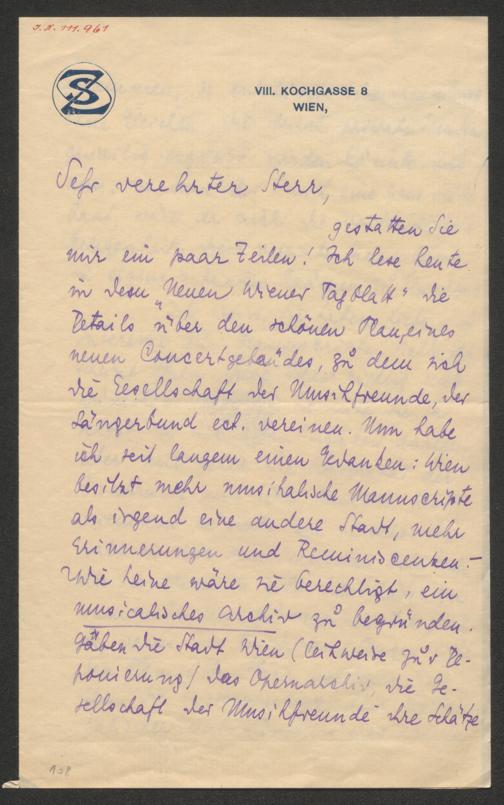 I.N. 111.961
SZ
VIII. KOCHGASSE 8
WIEN,
Sehr verehrter Herr,
gestatten Sie
mir ein paar Zeilen! Ich lese heute
in dem „Neuen Wiener Tagblatt" die
Details über den schönen Plan eines
neuen Concertgebäudes, zu dem sich
die Gesellschaft der Musikfreunde, der
Sängerbund ect. vereinen. Nun habe
ich seit langem einen Gedanken: Wien
besitzt mehr musikalische Manuscripte
als irgend eine andere Stadt, mehr
Erinnerungen und Reminiscenzen. –
Wie keine wäre sie berechtigt, ein
musicalisches Archiv zu begründen.
Gäben die Stadt Wien (leihweise zur De-
ponierung) das Opernarchiv, die Ge-
sellschaft der Musikfreunde ihre Schätze
108